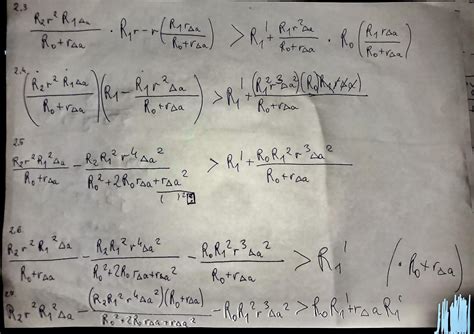 2.3
R₂r²R₁Δa / R₀+rΔa · R₁r − r(R₁rΔa / R₀+rΔa) > R₁' + R₁r²Δa / R₀+rΔa · R₀(R₁rΔa / R₀+rΔa)
2.4
(R₂r²R₁Δa / R₀+rΔa)(R₁ − R₁r²Δa / R₀+rΔa) > R₁' + (R₁²r³Δa²)(R₀) / R₀+rΔa
2.5
R₂r²R₁²Δa / R₀+rΔa − R₂R₁²r⁴Δa² / R₀²+2R₀rΔa+rΔa² > R₁' + R₀R₁²r³Δa² / R₀+rΔa
( )²
2.6.
R₂r²R₁²Δa / R₀+rΔa − R₂R₁²r⁴Δa² / R₀²+2R₀rΔa+rΔa² − R₀R₁²r³Δa² / R₀+rΔa > R₁' (· R₀+rΔa)
R₂r²R₁²Δa − (R₂R₁²r⁴Δa²)(R₀+rΔa) / R₀²+2R₀rΔa+rΔa² − R₀R₁²r³Δa² > R₀R₁'+rΔaR₁'